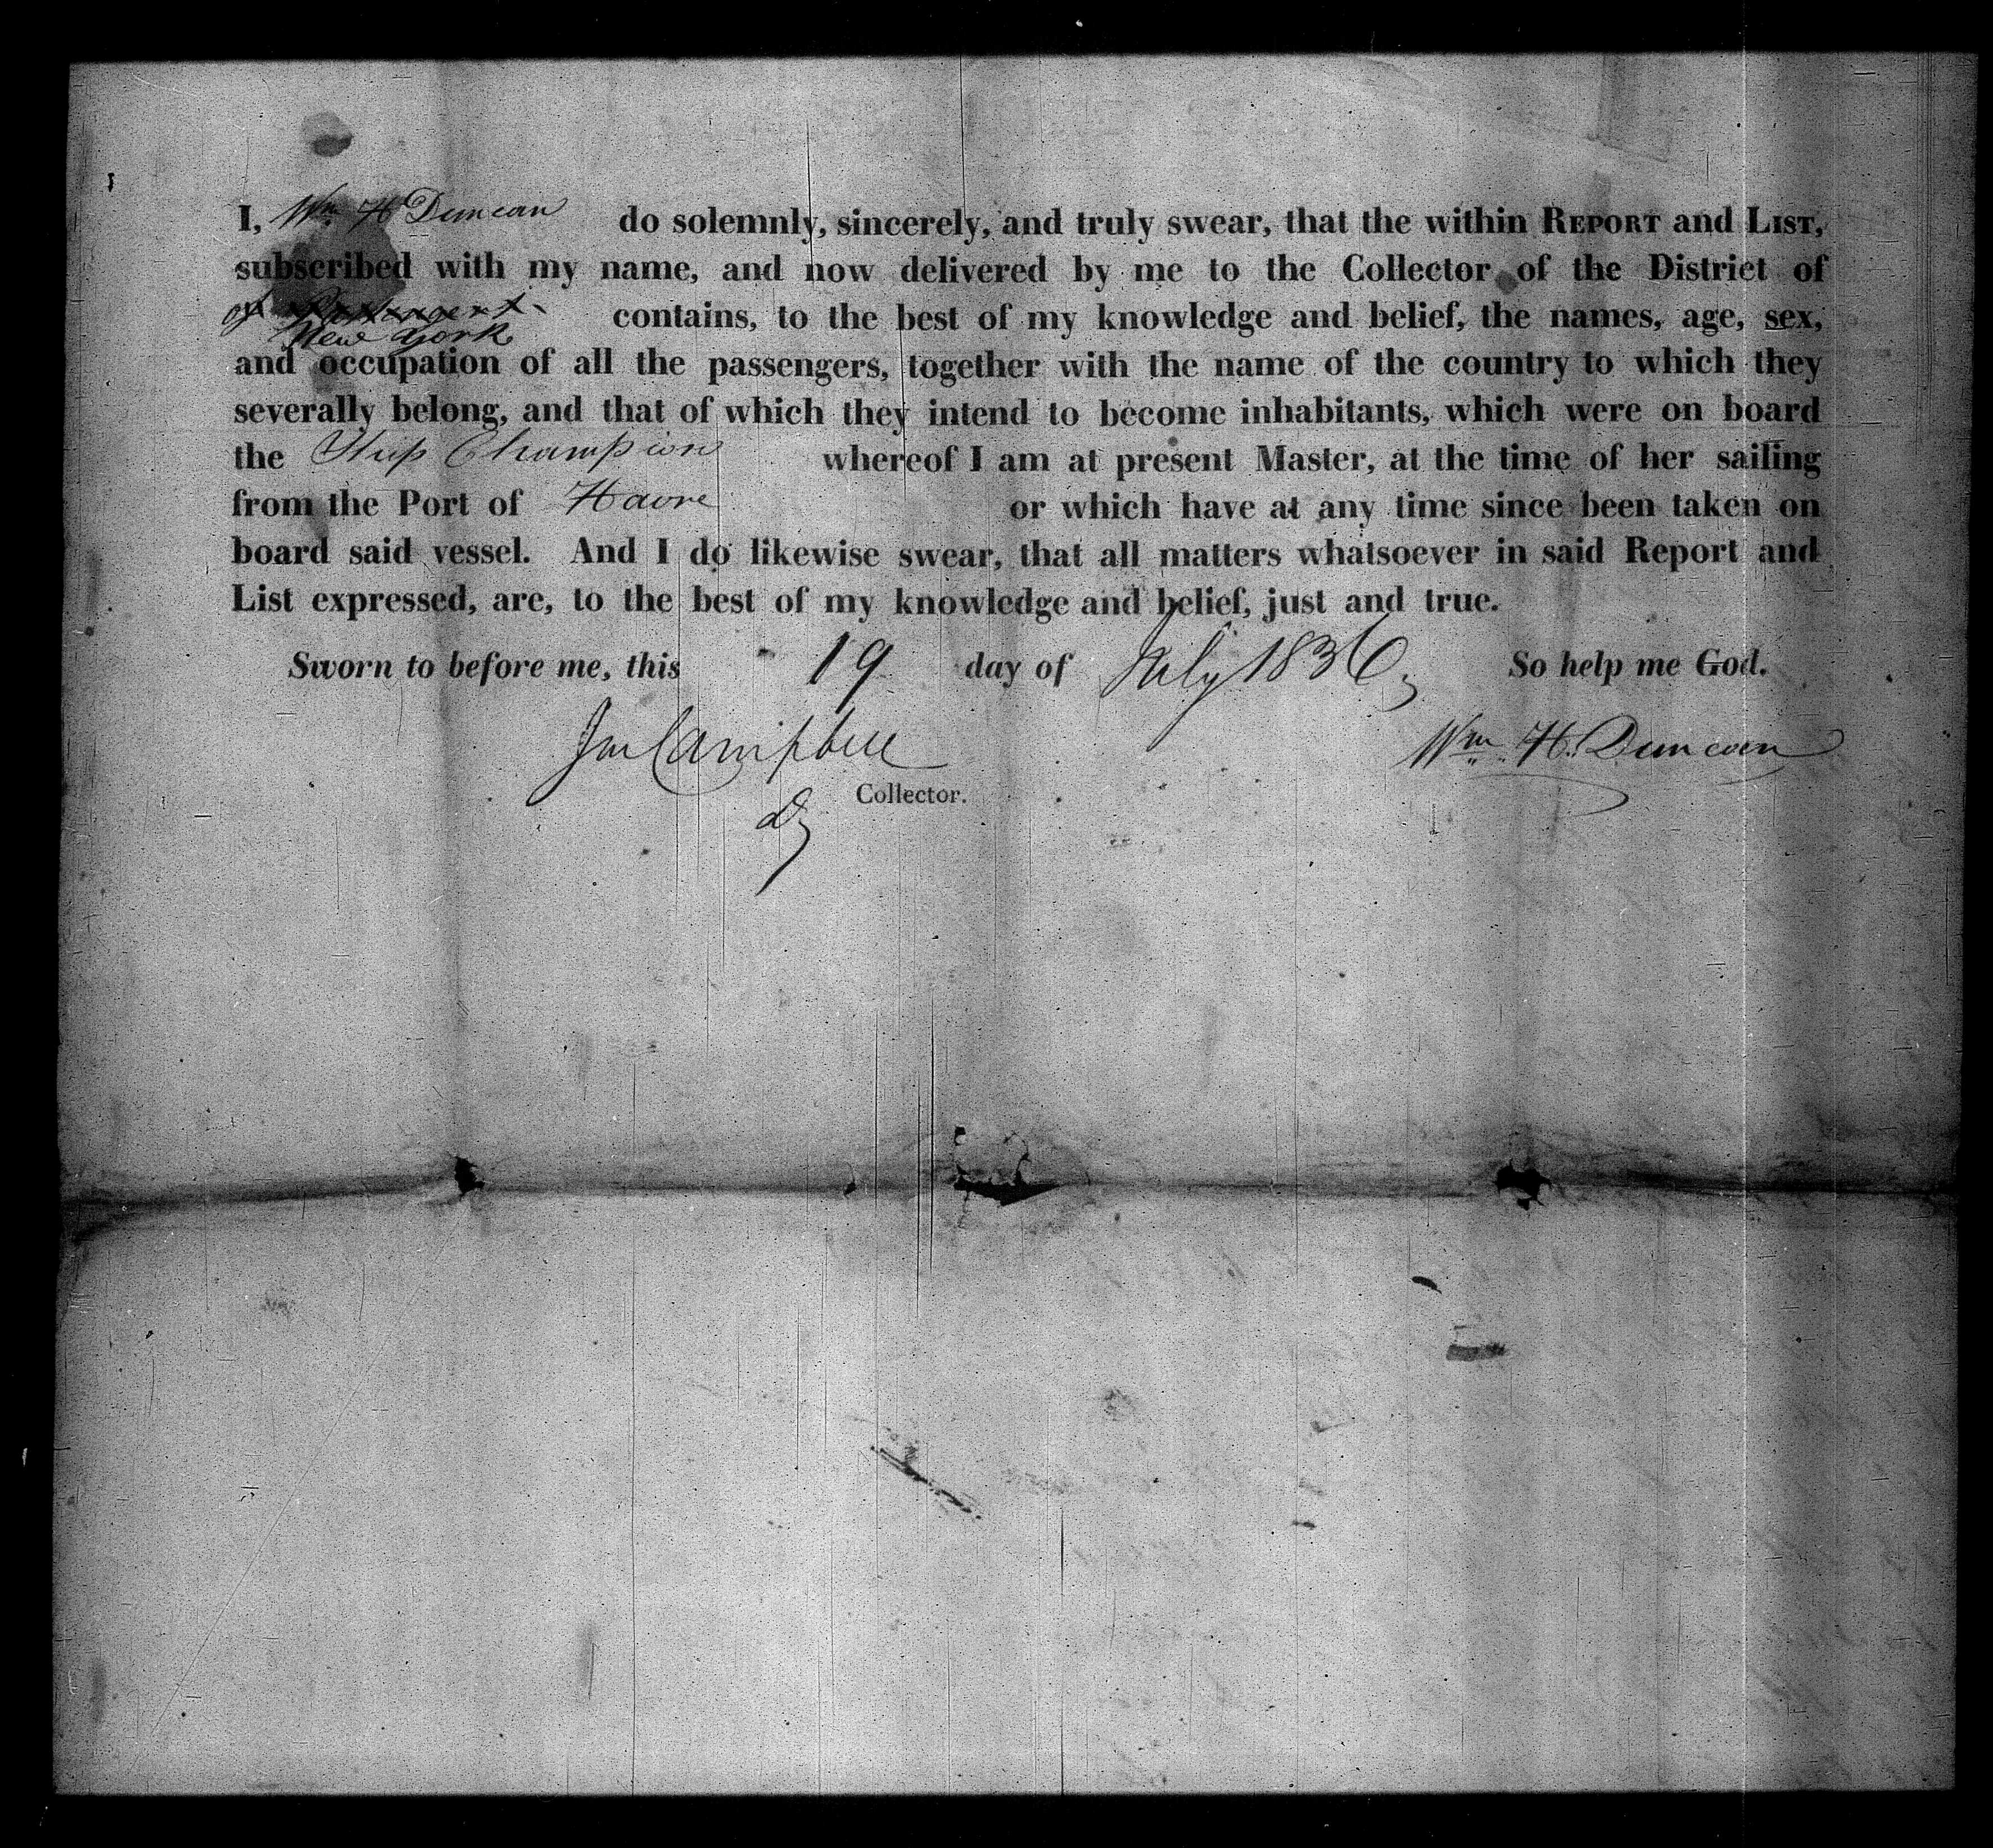 I, Wm H Duncan do solemnly, sincerely, and truly swear, that the within REPORT and LIST,
subscribed with my name, and now delivered by me to the Collector of the District of
of Passengers contains, to the best of my knowledge and belief, the names, age, sex,
New York
and occupation of all the passengers, together with the name of the country to which they
severally belong, and that of which they intend to become inhabitants, which were on board
the Ship Champion whereof I am at present Master, at the time of her sailing
from the Port of Havre or which have at any time since been taken on
board said vessel. And I do likewise swear, that all matters whatsoever in said Report and
List expressed, are, to the best of my knowledge and belief, just and true.
Sworn to before me, this 19 day of July 1836 So help me God.
Campbell Wm H. Duncan
Collector.